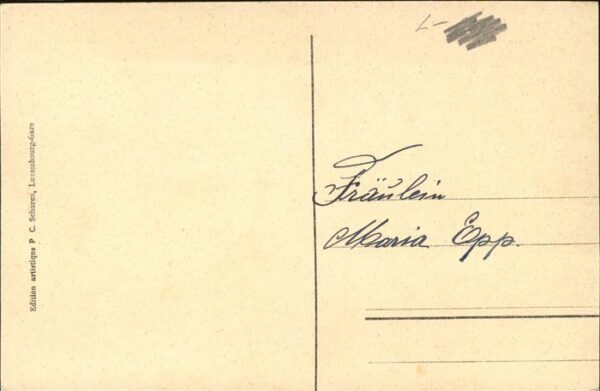 Edition artistique P. C. Schoren, Luxembourg-Gare
Fräulein
Maria Epp.